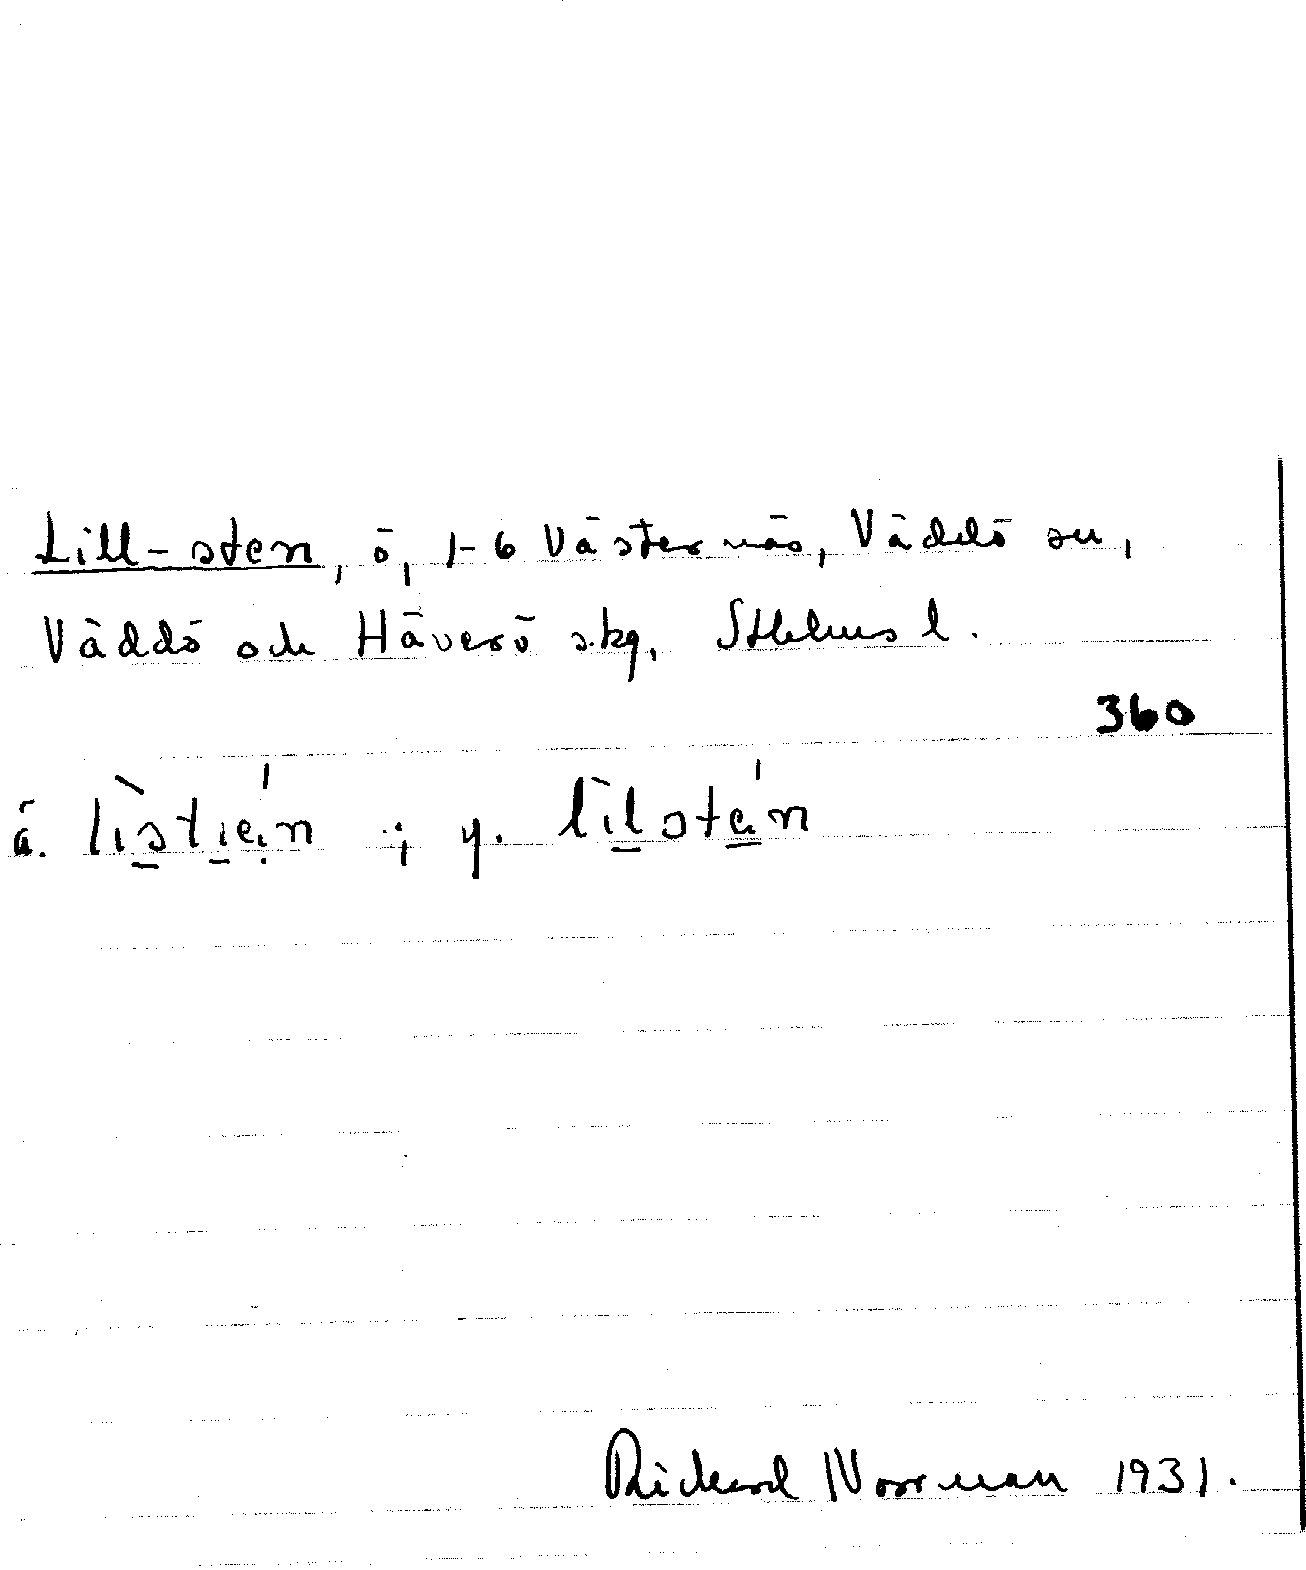 Lill-sten, ö, 1-6 Västernäs, Väddö sn,
Väddö och Häverö skg, Sthlms l.
360
ä. lìstıén ; y. lìlstén
Rickard Norrman 1931.